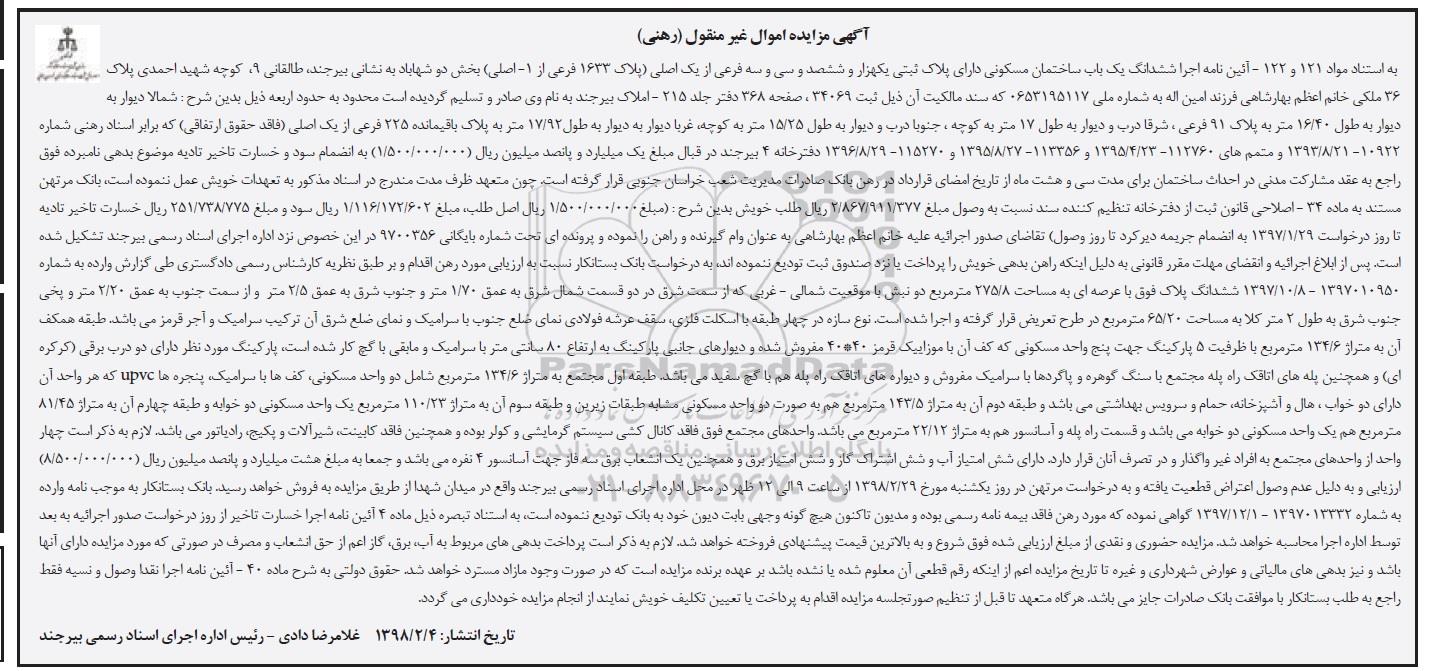 آگهی مزایده اموال غیر منقول (رهنی)
به استناد مواد ۱۲۱ و ۱۲۲ - آئین نامه اجرا ششدانگ یک باب ساختمان مسکونی دارای پلاک ثبتی یکهزار و ششصد و سی و سه فرعی از یک اصلی (پلاک ۱۶۳۳ فرعی از ۱- اصلی) بخش دو شهاباد به نشانی بیرجند، طالقانی ۹، کوچه شهید احمدی پلاک
۳۶ ملکی خانم اعظم بهارشاهی فرزند امین اله به شماره ملی ۰۶۵۳۱۹۵۱۱۷ که سند مالکیت آن ذیل ثبت ۳۴۰۶۹ ، صفحه ۳۶۸ دفتر جلد ۲۱۵ - املاک بیرجند به نام وی صادر و تسلیم گردیده است محدود به حدود اربعه ذیل بدین شرح : شمالا دیوار به
دیوار به طول ۱۶/۴۰ متر به پلاک ۹۱ فرعی ، شرقا درب و دیوار به طول ۱۷ متر به کوچه ، جنوبا درب و دیوار به طول ۱۵/۲۵ متر به کوچه، غربا دیوار به دیوار به طول۱۷/۹۲ متر به پلاک باقیمانده ۲۲۵ فرعی از یک اصلی (فاقد حقوق ارتفاقی) که برابر اسناد رهنی شماره
۱۰۹۲۲- ۱۳۹۳/۸/۲۱ و متمم های ۱۱۲۷۶۰- ۱۳۹۵/۴/۲۳ و ۱۱۳۳۵۶- ۱۳۹۵/۸/۲۷ و ۱۱۵۲۷۰- ۱۳۹۶/۸/۲۹ دفترخانه ۴ بیرجند در قبال مبلغ یک میلیارد و پانصد میلیون ریال (۱/۵۰۰/۰۰۰/۰۰۰) به انضمام سود و خسارت تاخیر تادیه موضوع بدهی نامبرده فوق
راجع به عقد مشارکت مدنی در احداث ساختمان برای مدت سی و هشت ماه از تاریخ امضای قرارداد در رهن بانک صادرات مدیریت شعب خراسان جنوبی قرار گرفته است. چون متعهد ظرف مدت مندرج در اسناد مذکور به تعهدات خویش عمل ننموده است، بانک مرتهن
مستند به ماده ۳۴ - اصلاحی قانون ثبت از دفترخانه تنظیم کننده سند نسبت به وصول مبلغ ۲/۸۶۷/۹۱۱/۳۷۷ ریال طلب خویش بدین شرح : (مبلغ ۱/۵۰۰/۰۰۰/۰۰۰ ریال اصل طلب، مبلغ ۱/۱۱۶/۱۷۲/۶۰۲ ریال سود و مبلغ ۲۵۱/۷۳۸/۷۷۵ ریال خسارت تاخیر تادیه
تا روز درخواست ۱۳۹۷/۱/۲۹ به انضمام جریمه دیرکرد تا روز وصول) تقاضای صدور اجرائیه علیه خانم اعظم بهارشاهی به عنوان وام گیرنده و راهن را نموده و پرونده ای تحت شماره بایگانی ۹۷۰۰۳۵۶ در این خصوص نزد اداره اجرای اسناد رسمی بیرجند تشکیل شده
است. پس از ابلاغ اجرائیه و انقضای مهلت مقرر قانونی به دلیل اینکه راهن بدهی خویش را پرداخت یا نزد صندوق ثبت تودیع ننموده اند، به درخواست بانک بستانکار نسبت به ارزیابی مورد رهن اقدام و بر طبق نظریه کارشناس رسمی دادگستری طی گزارش وارده به شماره
۱۳۹۷۰۱۰۹۵۰ - ۱۳۹۷/۱۰/۸ ششدانگ پلاک فوق با عرصه ای به مساحت ۲۷۵/۸ مترمربع دو نبش با موقعیت شمالی - غربی که از سمت شرق در دو قسمت شمال شرق به عمق ۱/۷۰ متر و جنوب شرق به عمق ۲/۵ متر و از سمت جنوب به عمق ۲/۲۰ متر و پخی
جنوب شرق به طول ۲ متر کلا به مساحت ۶۵/۲۰ مترمربع در طرح تعریض قرار گرفته و اجرا شده است. نوع سازه در چهار طبقه با اسکلت فلزی، سقف عرشه فولادی نمای ضلع جنوب با سرامیک و نمای ضلع شرق آن ترکیب سرامیک و آجر قرمز می باشد. طبقه همکف
آن به متراژ ۱۳۴/۶ مترمربع با ظرفیت ۵ پارکینگ جهت پنج واحد مسکونی که کف آن با موزاییک قرمز ۴۰*۴۰ مفروش شده و دیوارهای جانبی پارکینگ به ارتفاع ۸۰ سانتی متر با سرامیک و مابقی با گچ کار شده است، پارکینگ مورد نظر دارای دو درب برقی (کرکره
ای) و همچنین پله های اتاقک راه پله مجتمع با سنگ گوهره و پاگردها با سرامیک مفروش و دیواره های اتاقک راه پله هم با گچ سفید می باشد. طبقه اول مجتمع به متراژ ۱۳۴/۶ مترمربع شامل دو واحد مسکونی، کف ها با سرامیک، پنجره ها upvc که هر واحد آن
دارای دو خواب ، هال و آشپزخانه، حمام و سرویس بهداشتی می باشد و طبقه دوم آن به متراژ ۱۴۳/۵ مترمربع هم به صورت دو واحد مسکونی مشابه طبقات زیرین و طبقه سوم آن به متراژ ۱۱۰/۲۳ مترمربع یک واحد مسکونی دو خوابه و طبقه چهارم آن به متراژ ۸۱/۴۵
مترمربع هم یک واحد مسکونی دو خوابه می باشد و قسمت راه پله و آسانسور هم به متراژ ۲۲/۱۲ مترمربع می باشد. واحدهای مجتمع فوق فاقد کانال کشی سیستم گرمایشی و کولر بوده و همچنین فاقد کابینت، شیرآلات و پکیج، رادیاتور می باشد. لازم به ذکر است چهار
واحد از واحدهای مجتمع به افراد غیر واگذار و در تصرف آنان قرار دارد. دارای شش امتیاز آب و شش اشتراک گاز و شش امتیاز برق و همچنین یک انشعاب برق سه فاز جهت آسانسور ۴ نفره می باشد و جمعا به مبلغ هشت میلیارد و پانصد میلیون ریال (۸/۵۰۰/۰۰۰/۰۰۰)
ارزیابی و به دلیل عدم وصول اعتراض قطعیت یافته و به درخواست مرتهن در روز یکشنبه مورخ ۱۳۹۸/۲/۲۹ از ساعت ۹ الی ۱۲ ظهر در محل اداره اجرای اسناد رسمی بیرجند واقع در میدان شهدا از طریق مزایده به فروش خواهد رسید. بانک بستانکار به موجب نامه وارده
به شماره ۱۳۹۷۰۱۳۳۳۲ - ۱۳۹۷/۱۲/۱ گواهی نموده که مورد رهن فاقد بیمه نامه رسمی بوده و مدیون تاکنون هیچ گونه وجهی بابت دیون خود به بانک تودیع ننموده است، به استناد تبصره ذیل ماده ۴ آئین نامه اجرا خسارت تاخیر از روز درخواست صدور اجرائیه به بعد
توسط اداره اجرا محاسبه خواهد شد. مزایده حضوری و نقدی از مبلغ ارزیابی شده فوق شروع و به بالاترین قیمت پیشنهادی فروخته خواهد شد. لازم به ذکر است پرداخت بدهی های مربوط به آب، برق، گاز اعم از حق انشعاب و مصرف در صورتی که مورد مزایده دارای آنها
باشد و نیز بدهی های مالیاتی و عوارض شهرداری و غیره تا تاریخ مزایده اعم از اینکه رقم قطعی آن معلوم شده یا نشده باشد بر عهده برنده مزایده است که در صورت وجود مازاد مسترد خواهد شد. حقوق دولتی به شرح ماده ۴۰ - آئین نامه اجرا نقدا وصول و نسیه فقط
راجع به طلب بستانکار با موافقت بانک صادرات جایز می باشد. هرگاه متعهد تا قبل از تنظیم صورتجلسه مزایده اقدام به پرداخت یا تعیین تکلیف خویش نمایند از انجام مزایده خودداری می گردد.
تاریخ انتشار: ۱۳۹۸/۲/۴ غلامرضا دادی - رئیس اداره اجرای اسناد رسمی بیرجند
ParsNamadData
پایگاه اطلاع رسانی مناقصه و مزایده
۰۲۱-۸۸۳۴۹۶۷۰-۵